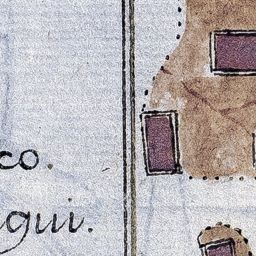 co.
gui.